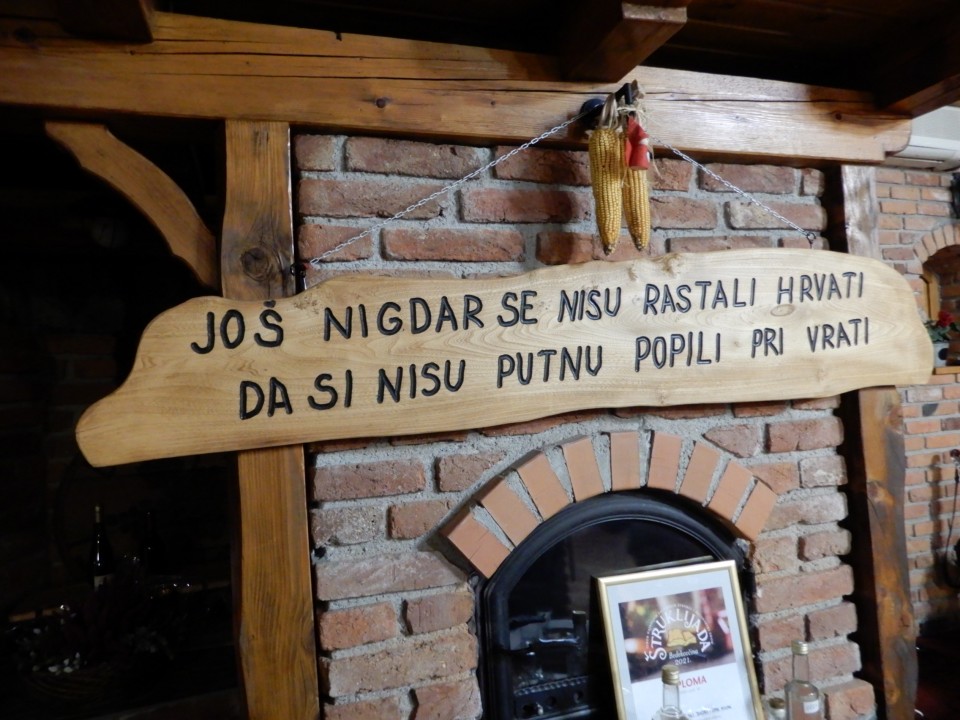 JOŠ NIGDAR SE NISU RASTALI HRVATI
DA SI NISU PUTNU POPILI PRI VRATI
ŠTRUKLIJADA
2021.